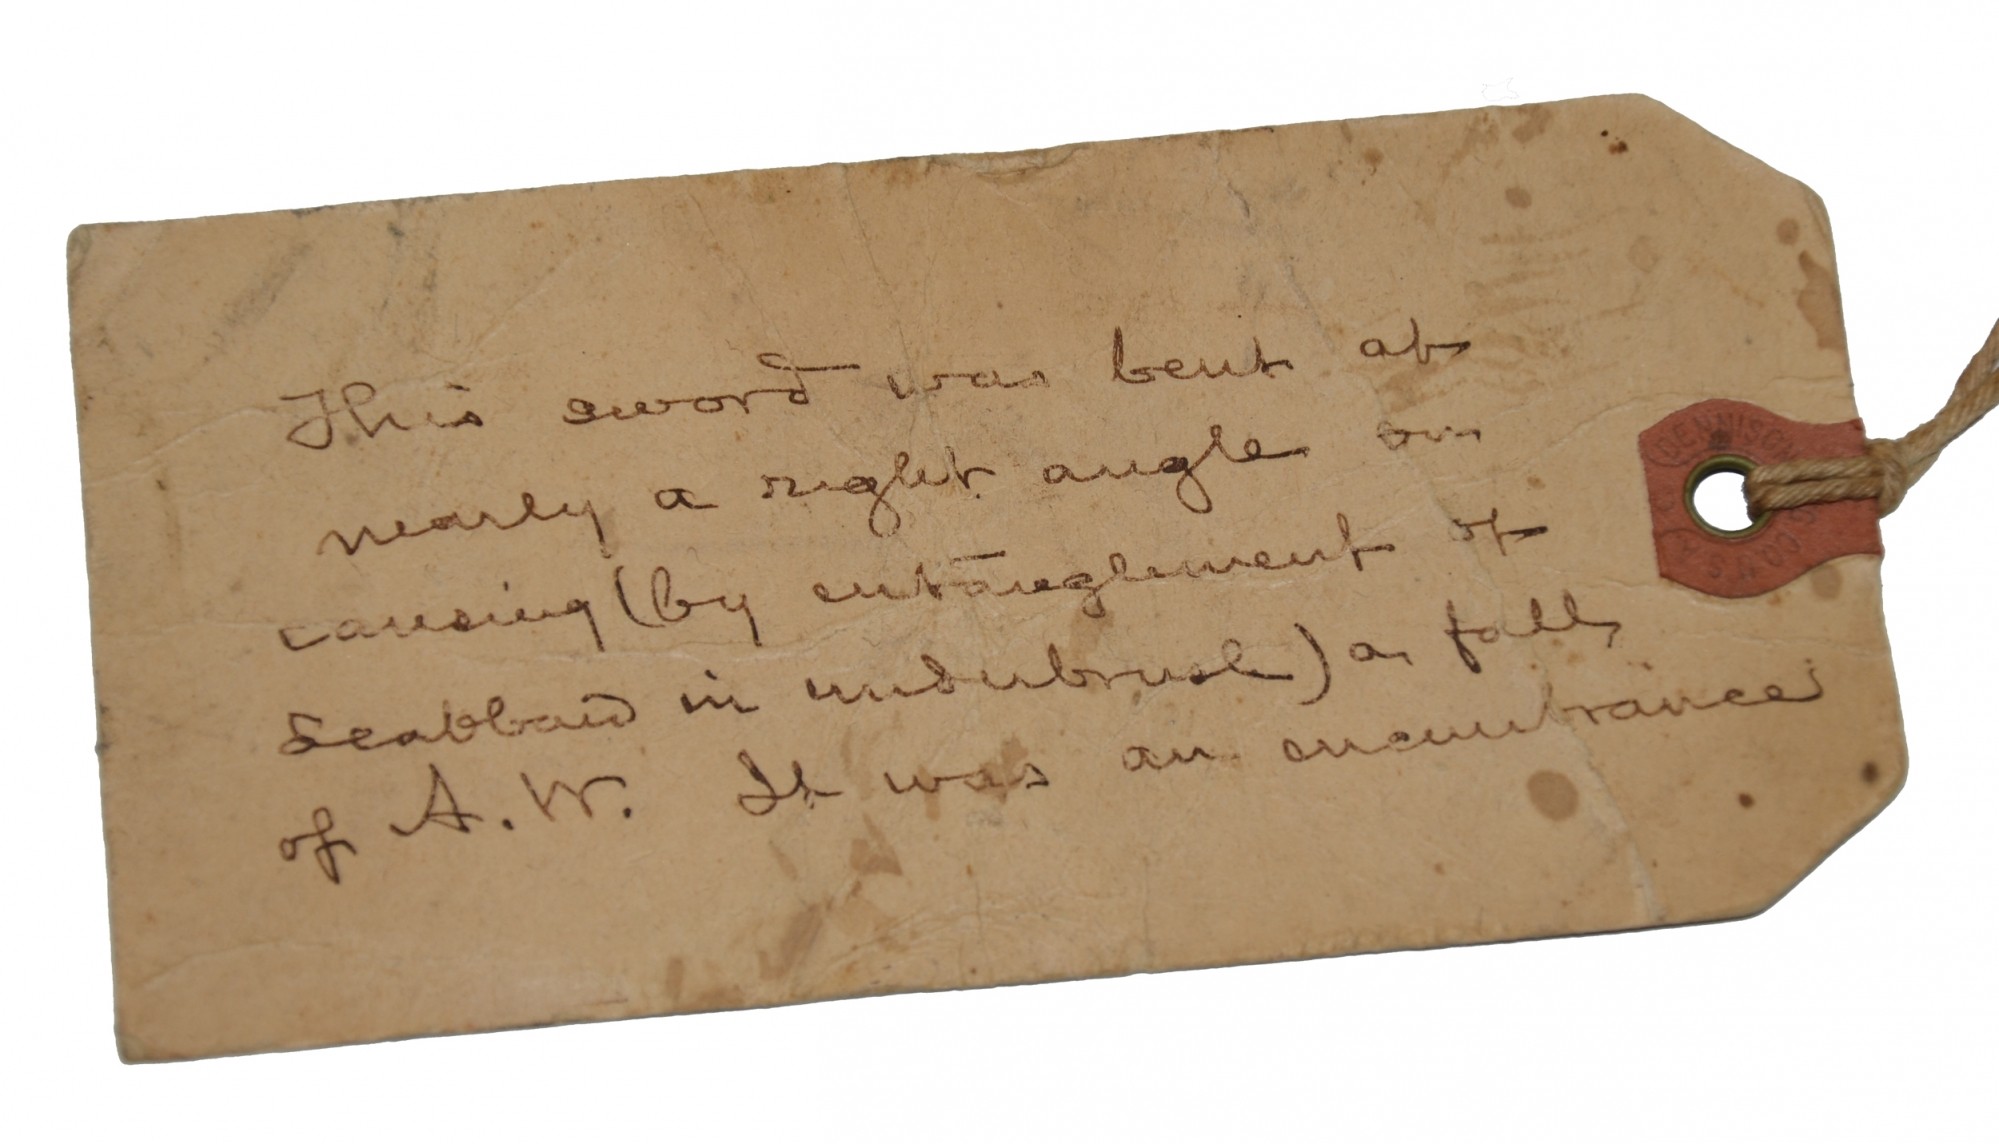 This sword was bent at
nearly a right angle on
causing (by entanglement of
scabbard in underbrush) a fall
of A. W. It was an encumbrance
DENNISON
CO
U S A